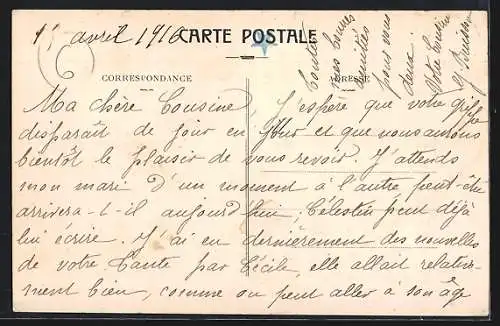 1er avril 1916
CARTE POSTALE
CORRESPONDANCE
ADRESSE
Ma chère Cousine, J'espère que votre grippe
disparaît de jour en jour et que nous aurons
bientôt le plaisir de vous revoir. J'attends
mon mari d'un moment à l'autre peut-être
arrivera-t-il aujourd'hui; Célestin peut déjà
lui écrire. J'ai eu dernièrement des nouvelles
de votre Tante par Cécile, elle allait relative-
ment bien, comme on peut aller à son âge
Toutes
nos bonnes
amitiés
pour vous
deux.
Votre Cousine